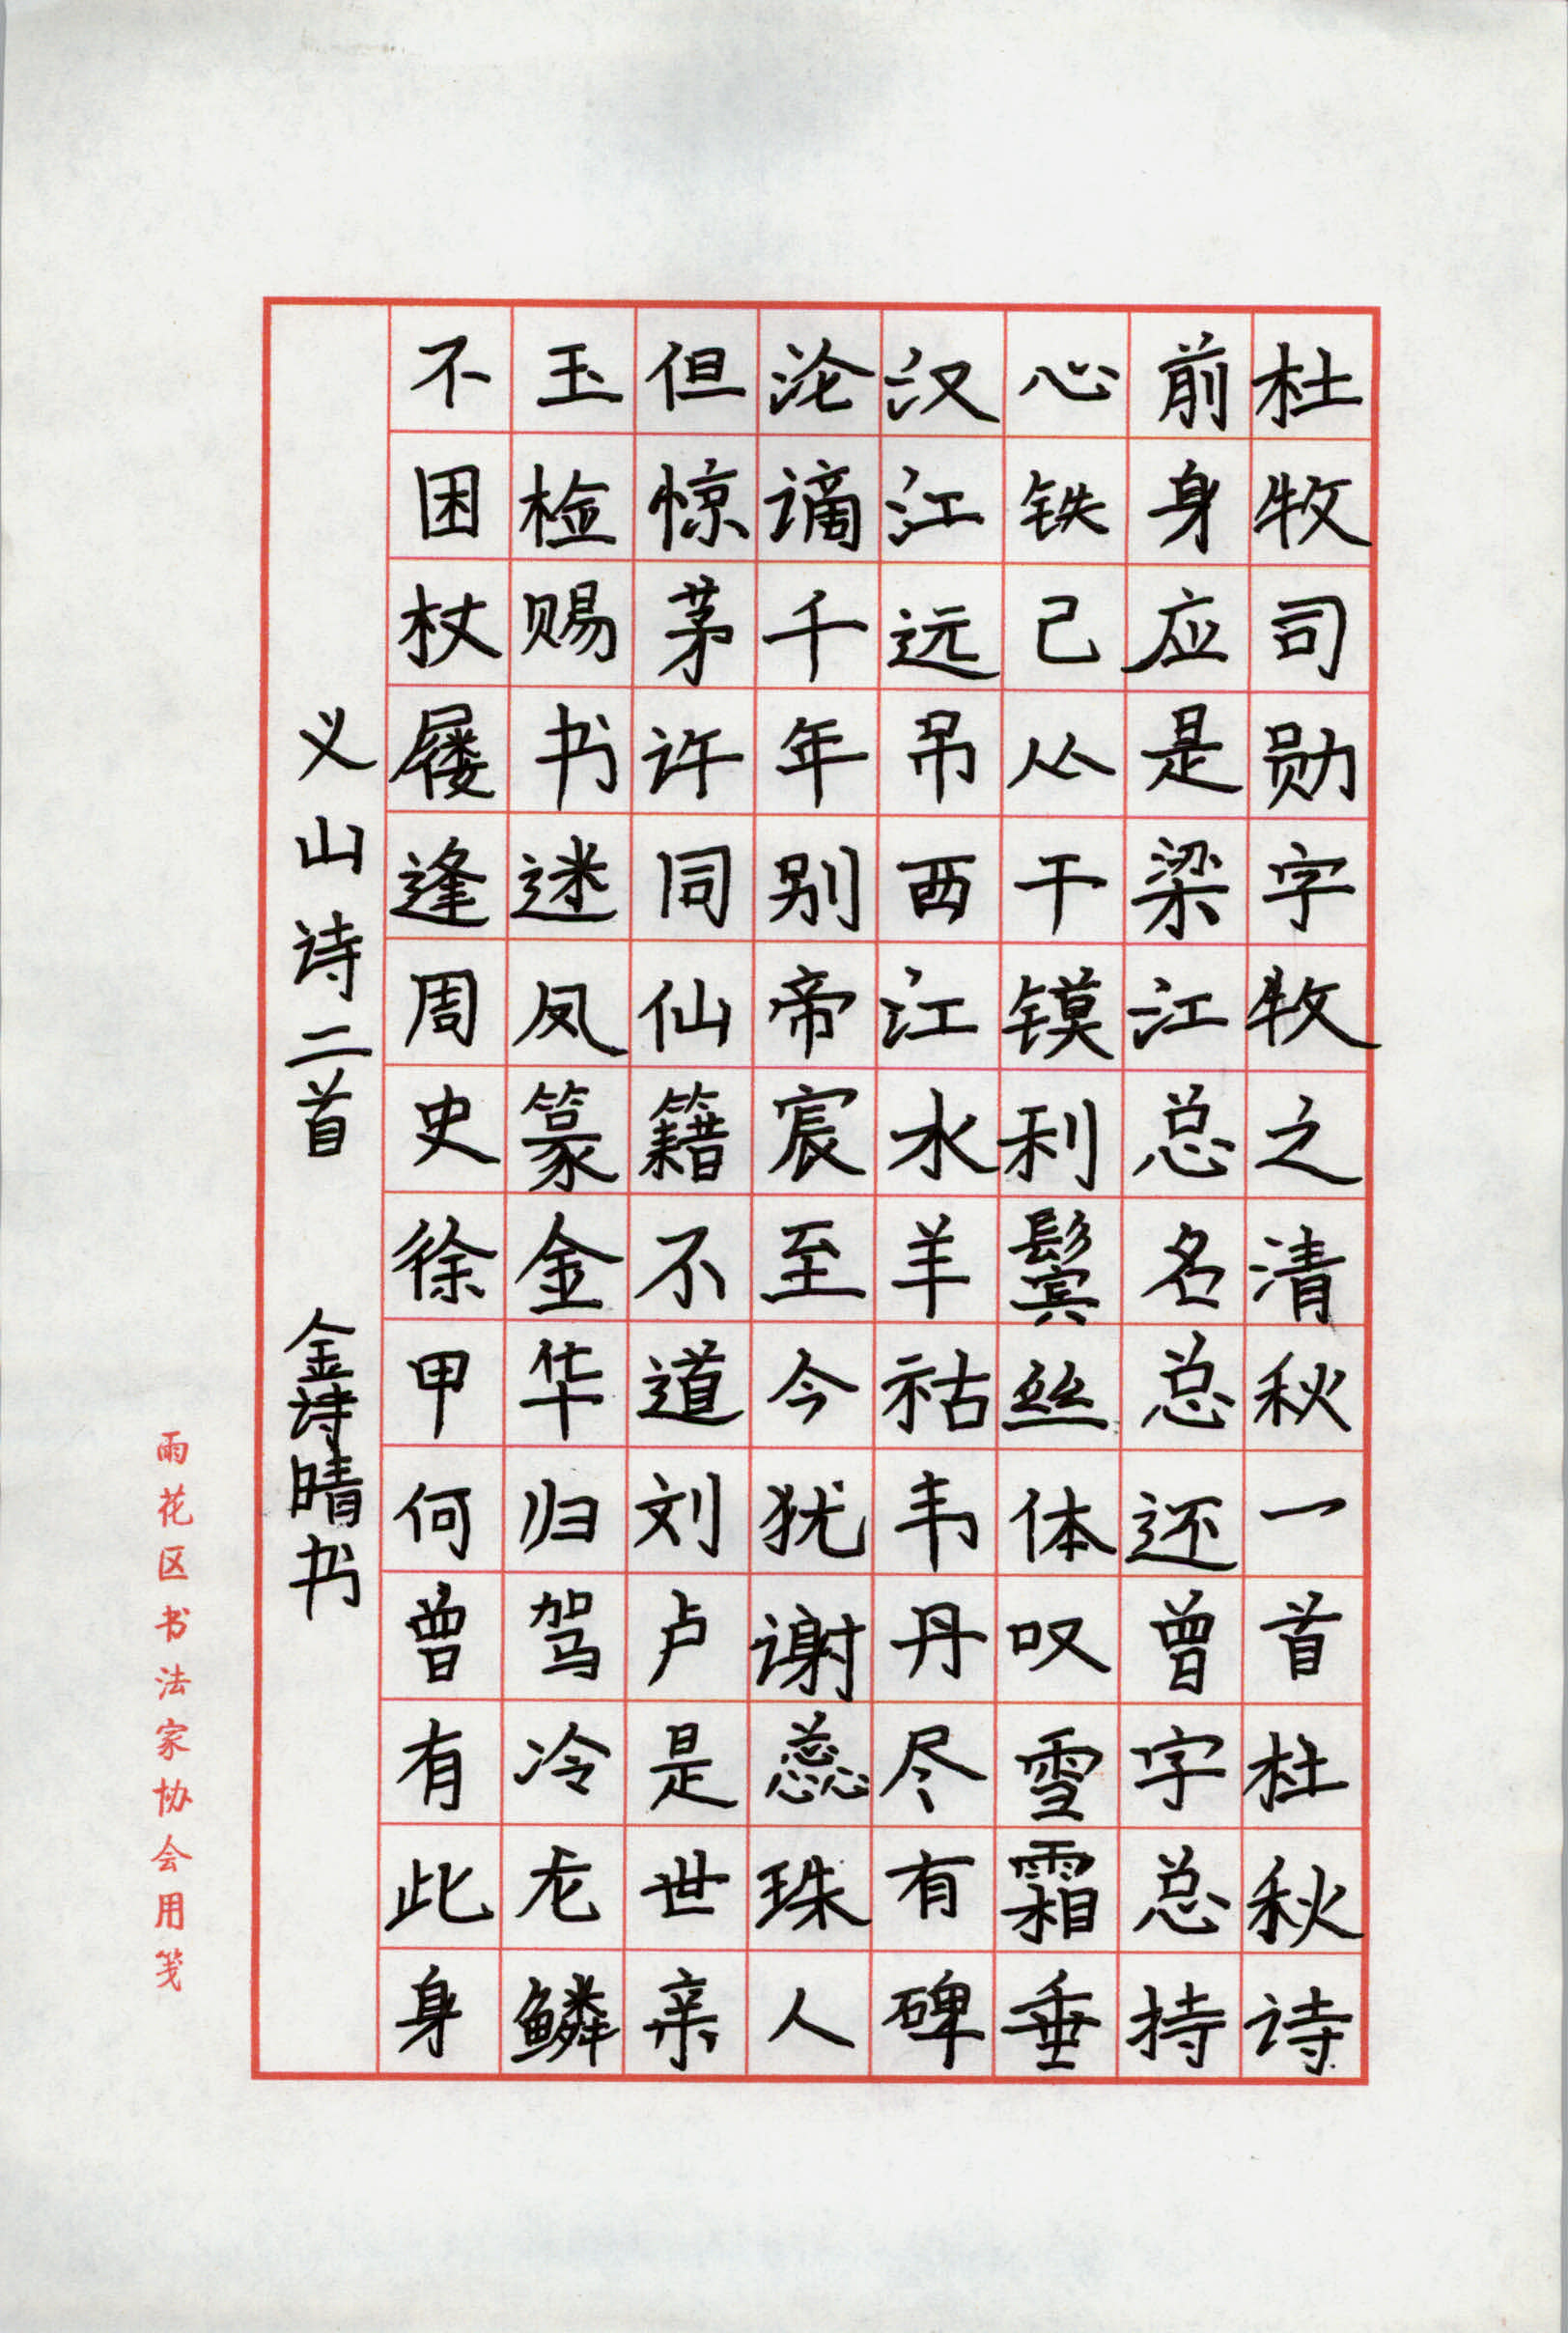 杜牧司勋字牧之清秋一首杜秋诗
前身应是梁江总名总还曾字总持
心铁己从干镆利鬓丝体叹雪霜垂
汉江远吊西江水羊祜韦丹尽有碑
沦谪千年别帝宸至今犹谢蕊珠人
但惊茅许同仙籍不道刘卢是世亲
玉检赐书迷凤篆金华归驾冷龙鳞
不困杖屦逢周史徐甲何曾有此身
义山诗二首 金诗晴书
雨花区书法家协会用笺